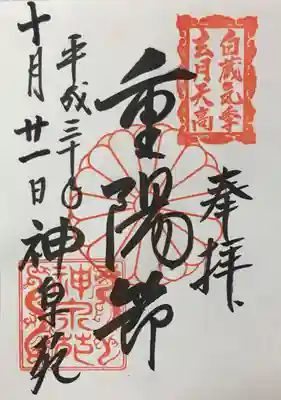 白蔵気季
玄月天高
奉拝
重陽節
平成三十年
十月廿一日 神泉苑
神泉苑